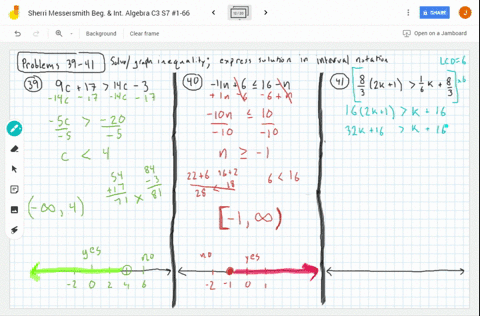 Sherri Messersmith Beg. & Int. Algebra C3 S7 #1-66
SHARE
Background
Clear frame
Open on a Jamboard
Problems 39-41 Solve/graph inequality; express solution in interval notation
39 9c + 17 > 14c - 3
-14c - 17 -14c - 17
-5c > -20
-5 -5
c < 4
54 84
+17 -3
71 × 81
(-∞, 4)
yes no
-2 0 2 4 6
40 -11n + 6 ≤ 16 - n
+1n - 6 -6 + n
-10n ≤ 10
-10 -10
n ≥ -1
22+6 16+2
28 < 18
6 < 16
[-1, ∞)
no yes
-2 -1 0 1
LCD=6
41 [8/3 (2k+1) > 1/6 k + 8/3] ·6
16(2k+1) > k + 16
32k+16 > k + 16